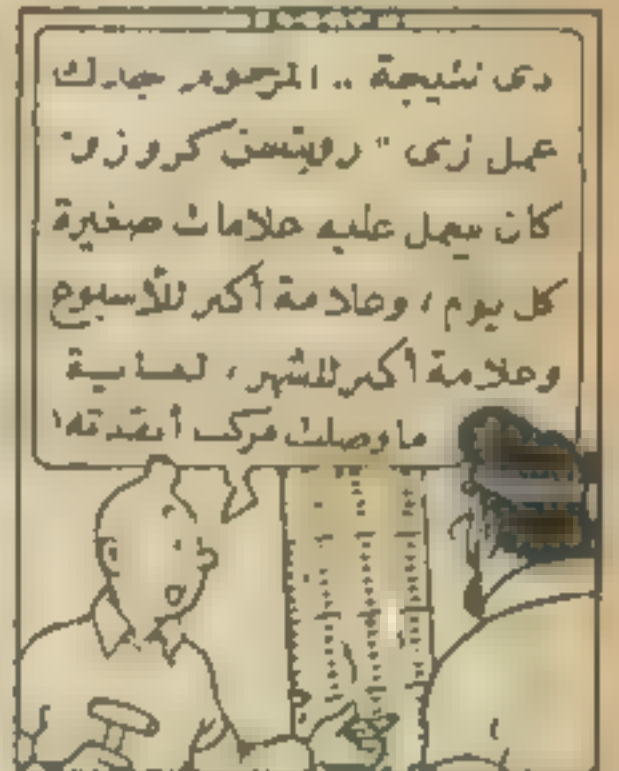 دى نتيجة .. المرحوم جدك
عمل زى " روبنسن كروزو "
كان بيعمل عليه علامات صغيرة
كل يوم ، وعلامة أكبر للأسبوع
وعلامة أكبر للشهر ، لغاية
ما وصلت مركب أنقذته !